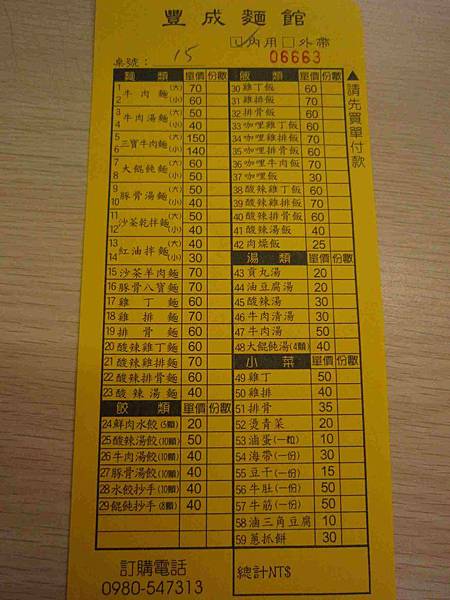 豐成麵館
☑內用 □外帶
桌號：15 06663
▲請先買單付款
麵類 單價 份數
1 牛肉麵 (大) 70
2 (小) 60
3 牛肉湯麵 (大) 50
4 (小) 40
5 三寶牛肉麵 (大) 150
6 (小) 140
7 大餛飩麵 (大) 60
8 (小) 50
9 豚骨湯麵 (大) 50
10 (小) 40
11 沙茶乾拌麵 (大) 50
12 (小) 40
13 紅油拌麵 (大) 40
14 (小) 30
15 沙茶羊肉麵 70
16 豚骨八寶麵 70
17 雞丁麵 60
18 雞排麵 70
19 排骨麵 60
20 酸辣雞丁麵 60
21 酸辣雞排麵 70
22 酸辣排骨麵 60
23 酸辣湯麵 40
餃類 單價 份數
24 鮮肉水餃(5顆) 20
25 酸辣湯餃(10顆) 50
26 牛肉湯餃(10顆) 40
27 豚骨湯餃(10顆) 40
28 水餃抄手(10顆) 40
29 餛飩抄手(8顆) 40
飯類 單價 份數
30 雞丁飯 60
31 雞排飯 70
32 排骨飯 60
33 咖哩雞丁飯 60
34 咖哩雞排飯 70
35 咖哩排骨飯 60
36 咖哩牛肉飯 70
37 咖哩飯 30
38 酸辣雞丁飯 60
39 酸辣雞排飯 70
40 酸辣排骨飯 60
41 酸辣湯飯 40
42 肉燥飯 25
湯類 單價 份數
43 貢丸湯 20
44 油豆腐湯 20
45 酸辣湯 30
46 牛肉清湯 30
47 牛肉湯 50
48 大餛飩湯(4顆) 40
小菜 單價 份數
49 雞丁 50
50 雞排 40
51 排骨 35
52 燙青菜 20
53 滷蛋(一粒) 10
54 海帶(一份) 30
55 豆干(一份) 15
56 牛肚(一份) 50
57 牛筋(一份) 50
58 滷三角豆腐 10
59 蔥抓餅 30
訂購電話
0980-547313
總計NT$